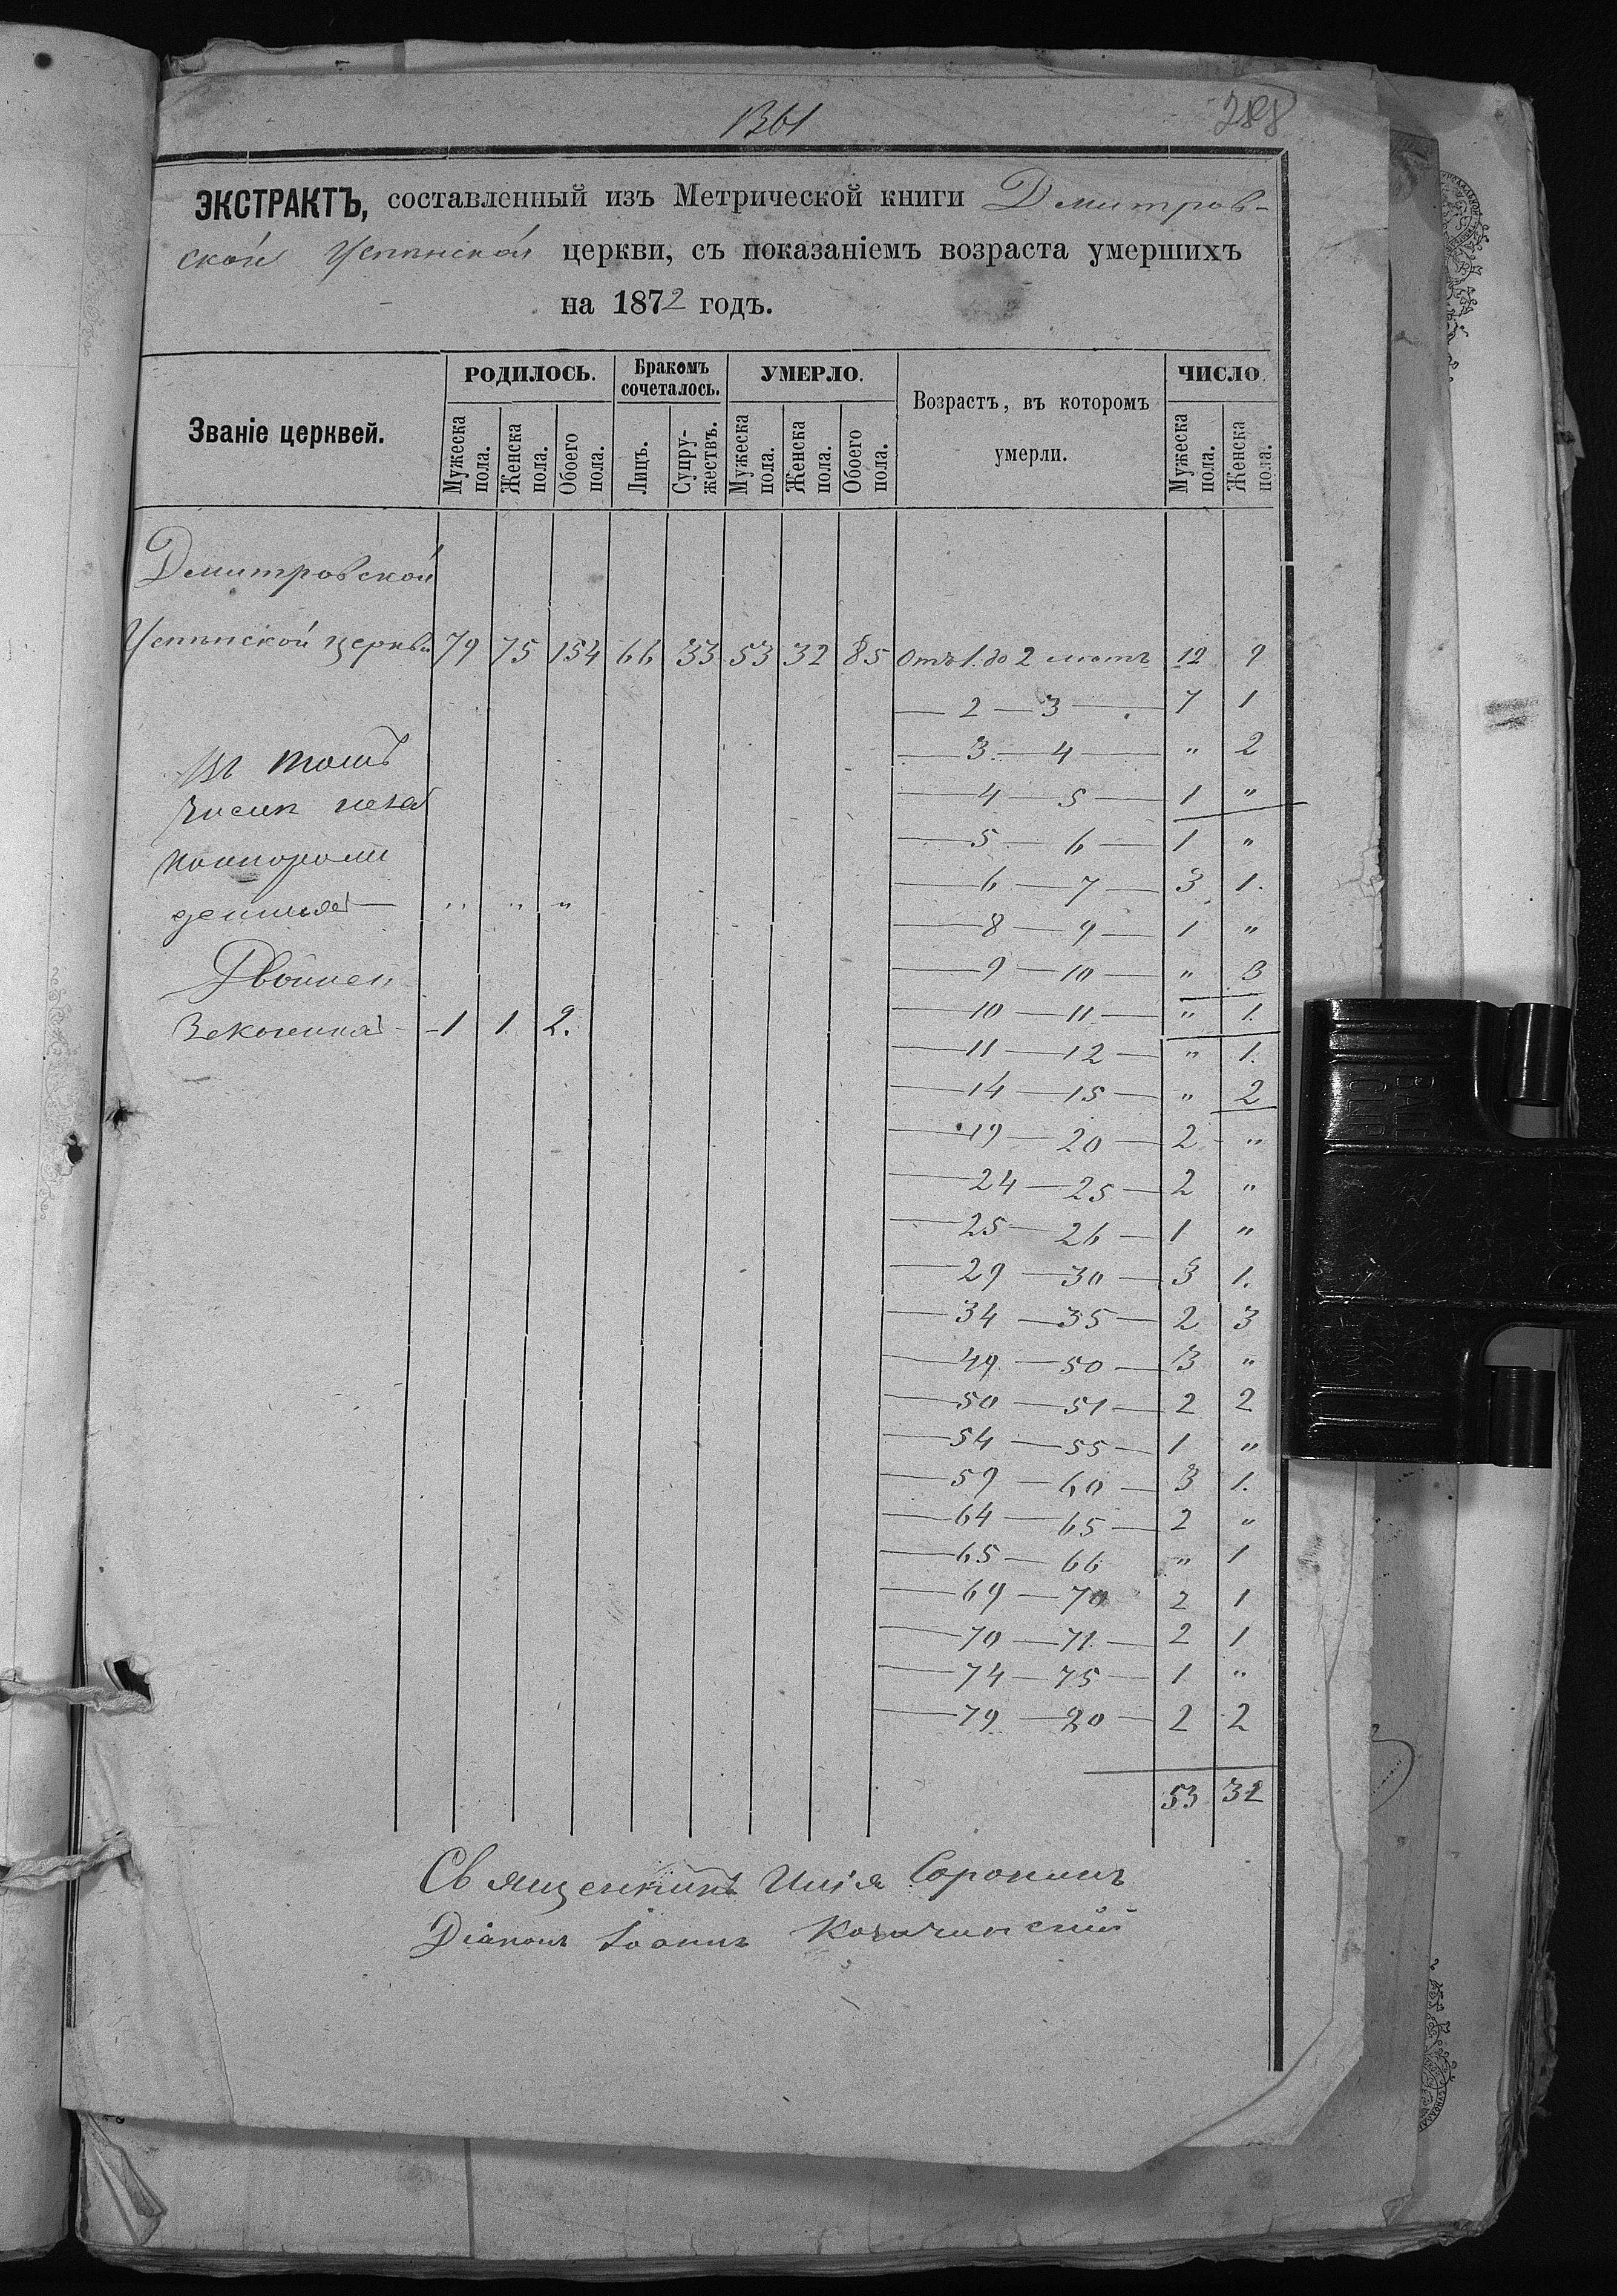 1361
288
ЭКСТРАКТЪ, составленный изъ Метрической книги Дмитров-
ской Успенской церкви, съ показаніемъ возраста умершихъ
на 1872 годъ.
Званіе церквей.
РОДИЛОСЬ.
Бракомъ сочеталось.
УМЕРЛО.
Возрастъ, въ которомъ умерли.
ЧИСЛО.
Мужеска пола.
Женска пола.
Обоего пола.
Лицъ.
Супру-жествъ.
Мужеска пола.
Женска пола.
Обоего пола.
Мужеска пола.
Женска пола.
Дмитровской
Успенской церкви 79 75 154 66 33 53 32 85 Отъ 1. до 2 летъ 12 9
— 2 — 3 — 7 1
Въ томъ — 3 — 4 — " 2
числе неза — 4 — 5 — 1 "
— 5 — 6 — 1 "
— 6 — 7 — 3 1.
" " " — 8 — 9 — 1 "
Двойней — 9 — 10 — " 3
Законныхъ — 1 1 2. — 10 — 11 — " 1.
— 11 — 12 — " 1.
— 14 — 15 — " 2
— 19 — 20 — 2 "
— 24 — 25 — 2 "
— 25 — 26 — 1 "
— 29 — 30 — 3 1.
— 34 — 35 — 2 3
— 49 — 50 — 3 "
— 50 — 51 — 2 2
— 54 — 55 — 1 "
— 59 — 60 — 3 1.
— 64 — 65 — 2 "
— 65 — 66 " 1
— 69 — 70 2 1
— 70 — 71 — 2 1
— 74 — 75 — 1 "
— 79 — 80 — 2 2
53 32
Священникъ Илія Сорокинъ
Діаконъ Іоаннъ